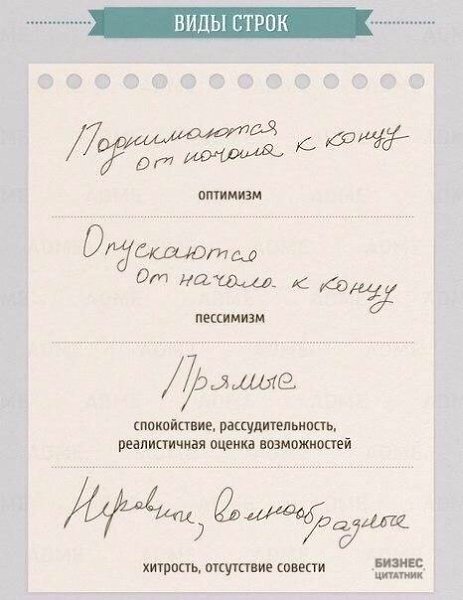 ВИДЫ СТРОК
Поднимаются
от начала к концу
ОПТИМИЗМ
Опускаются
от начала к концу
ПЕССИМИЗМ
Прямые
СПОКОЙСТВИЕ, РАССУДИТЕЛЬНОСТЬ,
РЕАЛИСТИЧНАЯ ОЦЕНКА ВОЗМОЖНОСТЕЙ
Неровные, волнообразные
ХИТРОСТЬ, ОТСУТСТВИЕ СОВЕСТИ
БИЗНЕС
ЦИТАТНИК